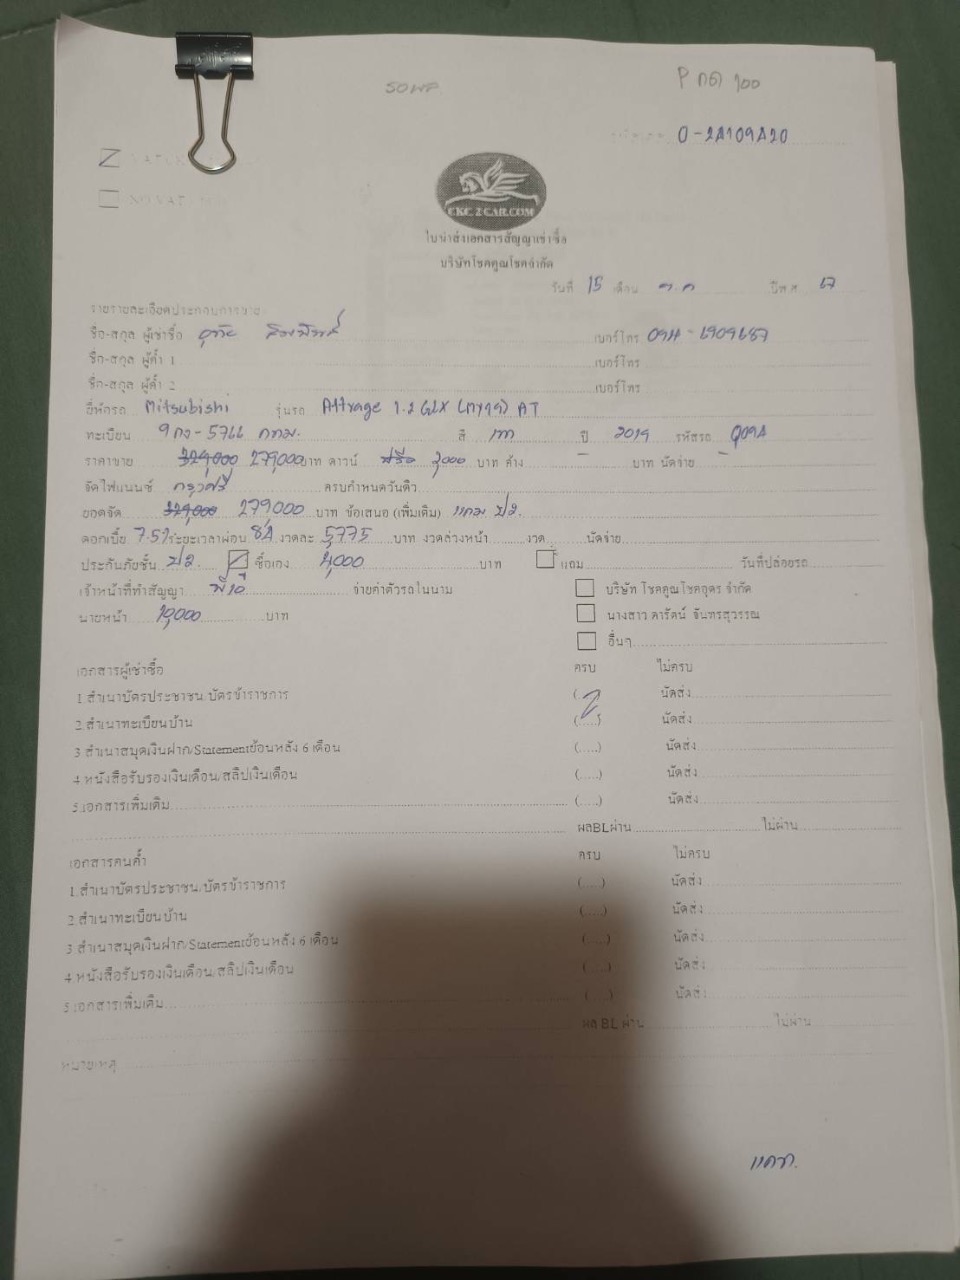 50 พ.ศ.
P กด 100
0-2A109A20
VAT
NO VAT
CKC 2 CAR.COM
ใบนำส่งเอกสารสัญญาเช่าซื้อ
บริษัทโชคคูณโชคจำกัด
วันที่ 15 เดือน ต.ค ปี พ.ศ. 67
รายรายละเอียดประกอบการขาย
ชื่อ-สกุล ผู้เช่าซื้อ อุทัย เบอร์โทร
ชื่อ-สกุล ผู้ค้ำ 1 เบอร์โทร
ชื่อ-สกุล ผู้ค้ำ 2 เบอร์โทร
ยี่ห้อรถ Mitsubishi รุ่นรถ Attrage 1.2 GLX AT
ทะเบียน 9 กง-5766 กทม. สี เทา ปี 2019 รหัสรถ Q09A
ราคาขาย 329,000 279,000 บาท ดาวน์ ฟรี 2,000 บาท ค้าง - บาท นัดจ่าย -
จัดไฟแนนซ์ กรุงศรี ครบกำหนดวันดิว
ยอดจัด 329,000 279,000 บาท ข้อเสนอ (เพิ่มเติม) แถม ป2.
ดอกเบี้ย 7.57 ระยะเวลาผ่อน 84 งวดละ 5775 บาท งวดล่วงหน้า งวด นัดจ่าย
ประกันภัยชั้น ป2. ซื้อเอง 4,000 บาท แถม วันที่ปล่อยรถ
เจ้าหน้าที่ทำสัญญา จ่ายค่าตัวรถในนาม บริษัท โชคคูณโชคอุดร จำกัด
นายหน้า 10,000 บาท นางสาว ดารัตน์ จันทรสุวรรณ
อื่นๆ
เอกสารผู้เช่าซื้อ ครบ ไม่ครบ
1.สำเนาบัตรประชาชน/บัตรข้าราชการ นัดส่ง
2.สำเนาทะเบียนบ้าน นัดส่ง
3.สำเนาสมุดเงินฝาก/Statementย้อนหลัง 6 เดือน (.....) นัดส่ง
4.หนังสือรับรองเงินเดือน/สลิปเงินเดือน (.....) นัดส่ง
5.เอกสารเพิ่มเติม (.....) นัดส่ง
ผลBLผ่าน ไม่ผ่าน
เอกสารคนค้ำ ครบ ไม่ครบ
1.สำเนาบัตรประชาชน/บัตรข้าราชการ (.....) นัดส่ง
2.สำเนาทะเบียนบ้าน (.....) นัดส่ง
3.สำเนาสมุดเงินฝาก/Statementย้อนหลัง 6 เดือน (.....) นัดส่ง
4.หนังสือรับรองเงินเดือน/สลิปเงินเดือน (.....) นัดส่ง
5.เอกสารเพิ่มเติม (.....) นัดส่ง
ผล BL ผ่าน ไม่ผ่าน
หมายเหตุ